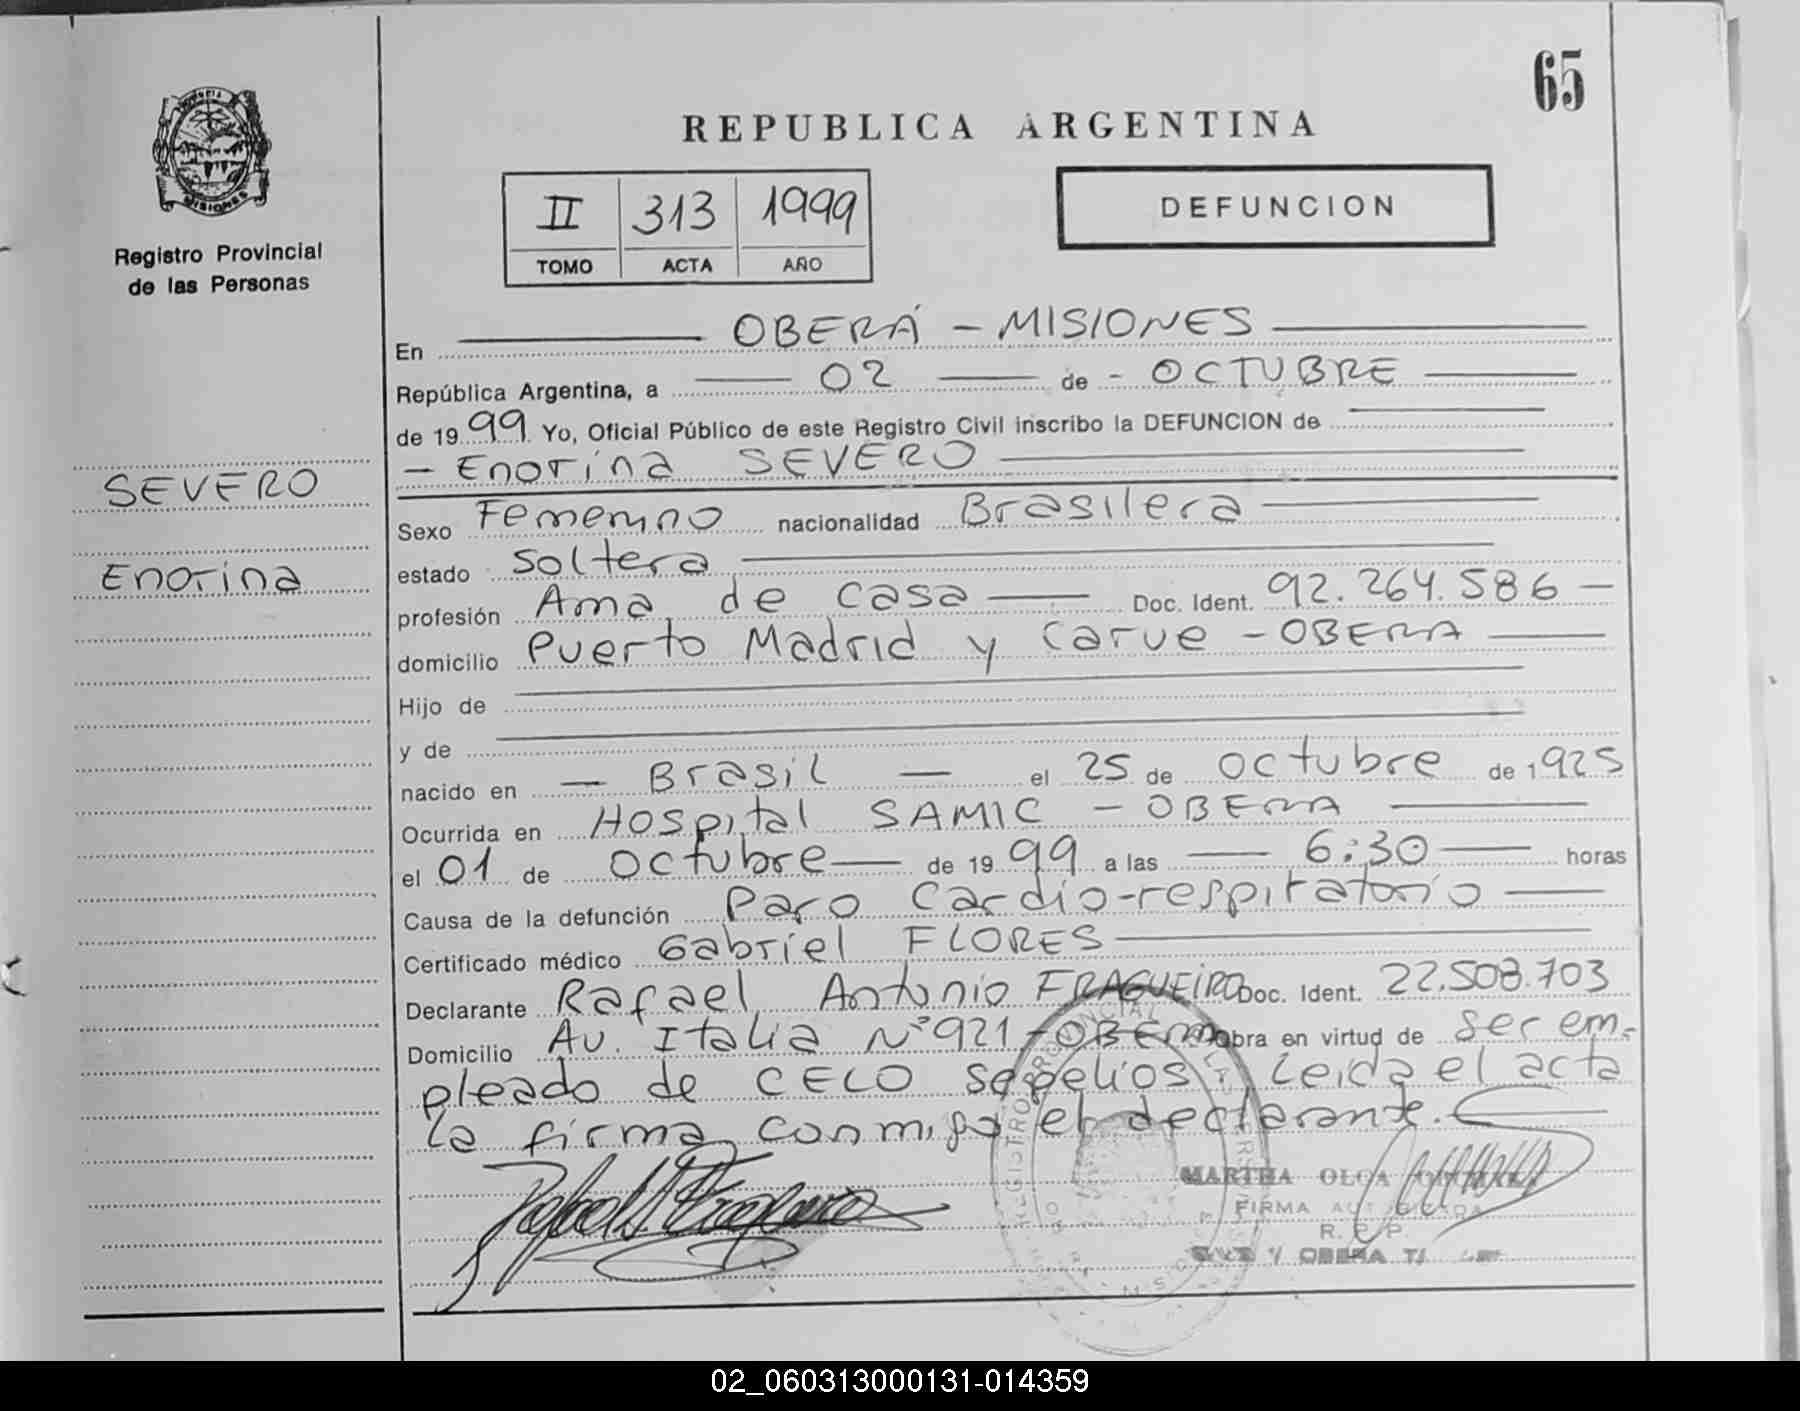 65
REPUBLICA ARGENTINA
PROVINCIA
MISIONES
Registro Provincial
de las Personas
II 313 1999
TOMO ACTA AÑO
DEFUNCION
SEVERO
Enorina
En OBERÁ - MISIONES
República Argentina, a 02 de - OCTUBRE
de 1999 Yo, Oficial Público de este Registro Civil inscribo la DEFUNCION de
- Enorina SEVERO
Sexo Femenino nacionalidad Brasilera
estado Soltera
profesión Ama de casa Doc. Ident. 92.264.586 -
domicilio Puerto Madrid y Carue - OBERA
Hijo de
y de
nacido en - Brasil - el 25 de octubre de 1925
Ocurrida en Hospital SAMIC - OBERA
el 01 de octubre de 1999 a las 6:30 horas
Causa de la defunción Paro Cardio-respiratorio
Certificado médico Gabriel FLORES
Declarante Rafael Antonio FRAGUEIRO Doc. Ident. 22.508.703
Domicilio Av. Italia N° 921 - OBERA Obra en virtud de Ser em-
pleado de CELO sepelios. Leida el acta
la firma conmigo el declarante.
MARTHA OLGA
FIRMA AUTORIZADA
R. P.
OBERA
02_060313000131-014359